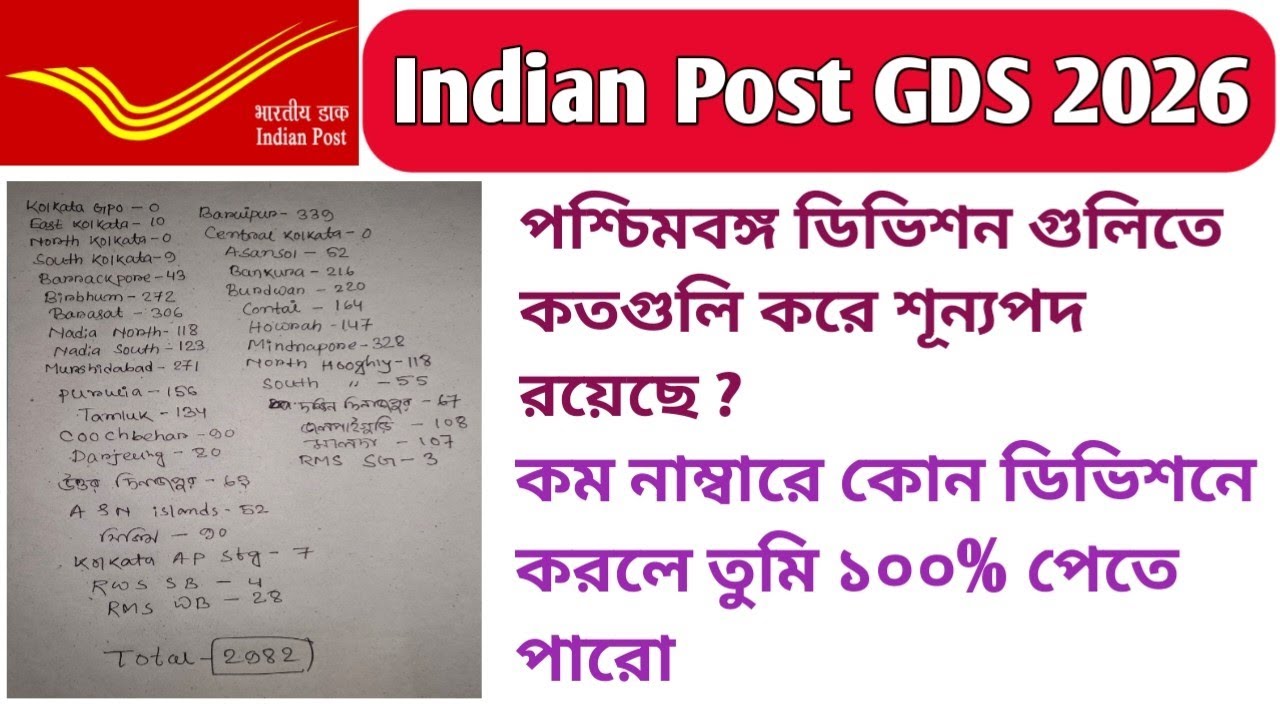 भारतीय डाक
Indian Post
Indian Post GDS 2026
পশ্চিমবঙ্গ ডিভিশন গুলিতে
কতগুলি করে শূন্যপদ
রয়েছে ?
কম নাম্বারে কোন ডিভিশনে
করলে তুমি ১০০% পেতে
পারো
Kolkata GPO - 0
East Kolkata - 10
North Kolkata - 0
South Kolkata - 9
Barrackpore - 43
Birbhum - 272
Barasat - 306
Nadia North - 118
Nadia South - 123
Murshidabad - 271
Purulia - 156
Tamluk - 134
Coochbehar - 90
Darjeeling - 20
উত্তর দিনাজপুর - 63
A & N islands - 52
সিকিম - 90
Kolkata AP Stg - 7
RMS SB - 4
RMS WB - 28
Baruipur - 339
Central Kolkata - 0
Asansol - 52
Bankura - 216
Burdwan - 220
Contai - 164
Howrah - 147
Midnapore - 328
North Hooghly - 118
South " - 55
দক্ষিন দিনাজপুর - 67
জলপাইগুড়ি - 108
মালদা - 107
RMS SG - 3
Total - 2982